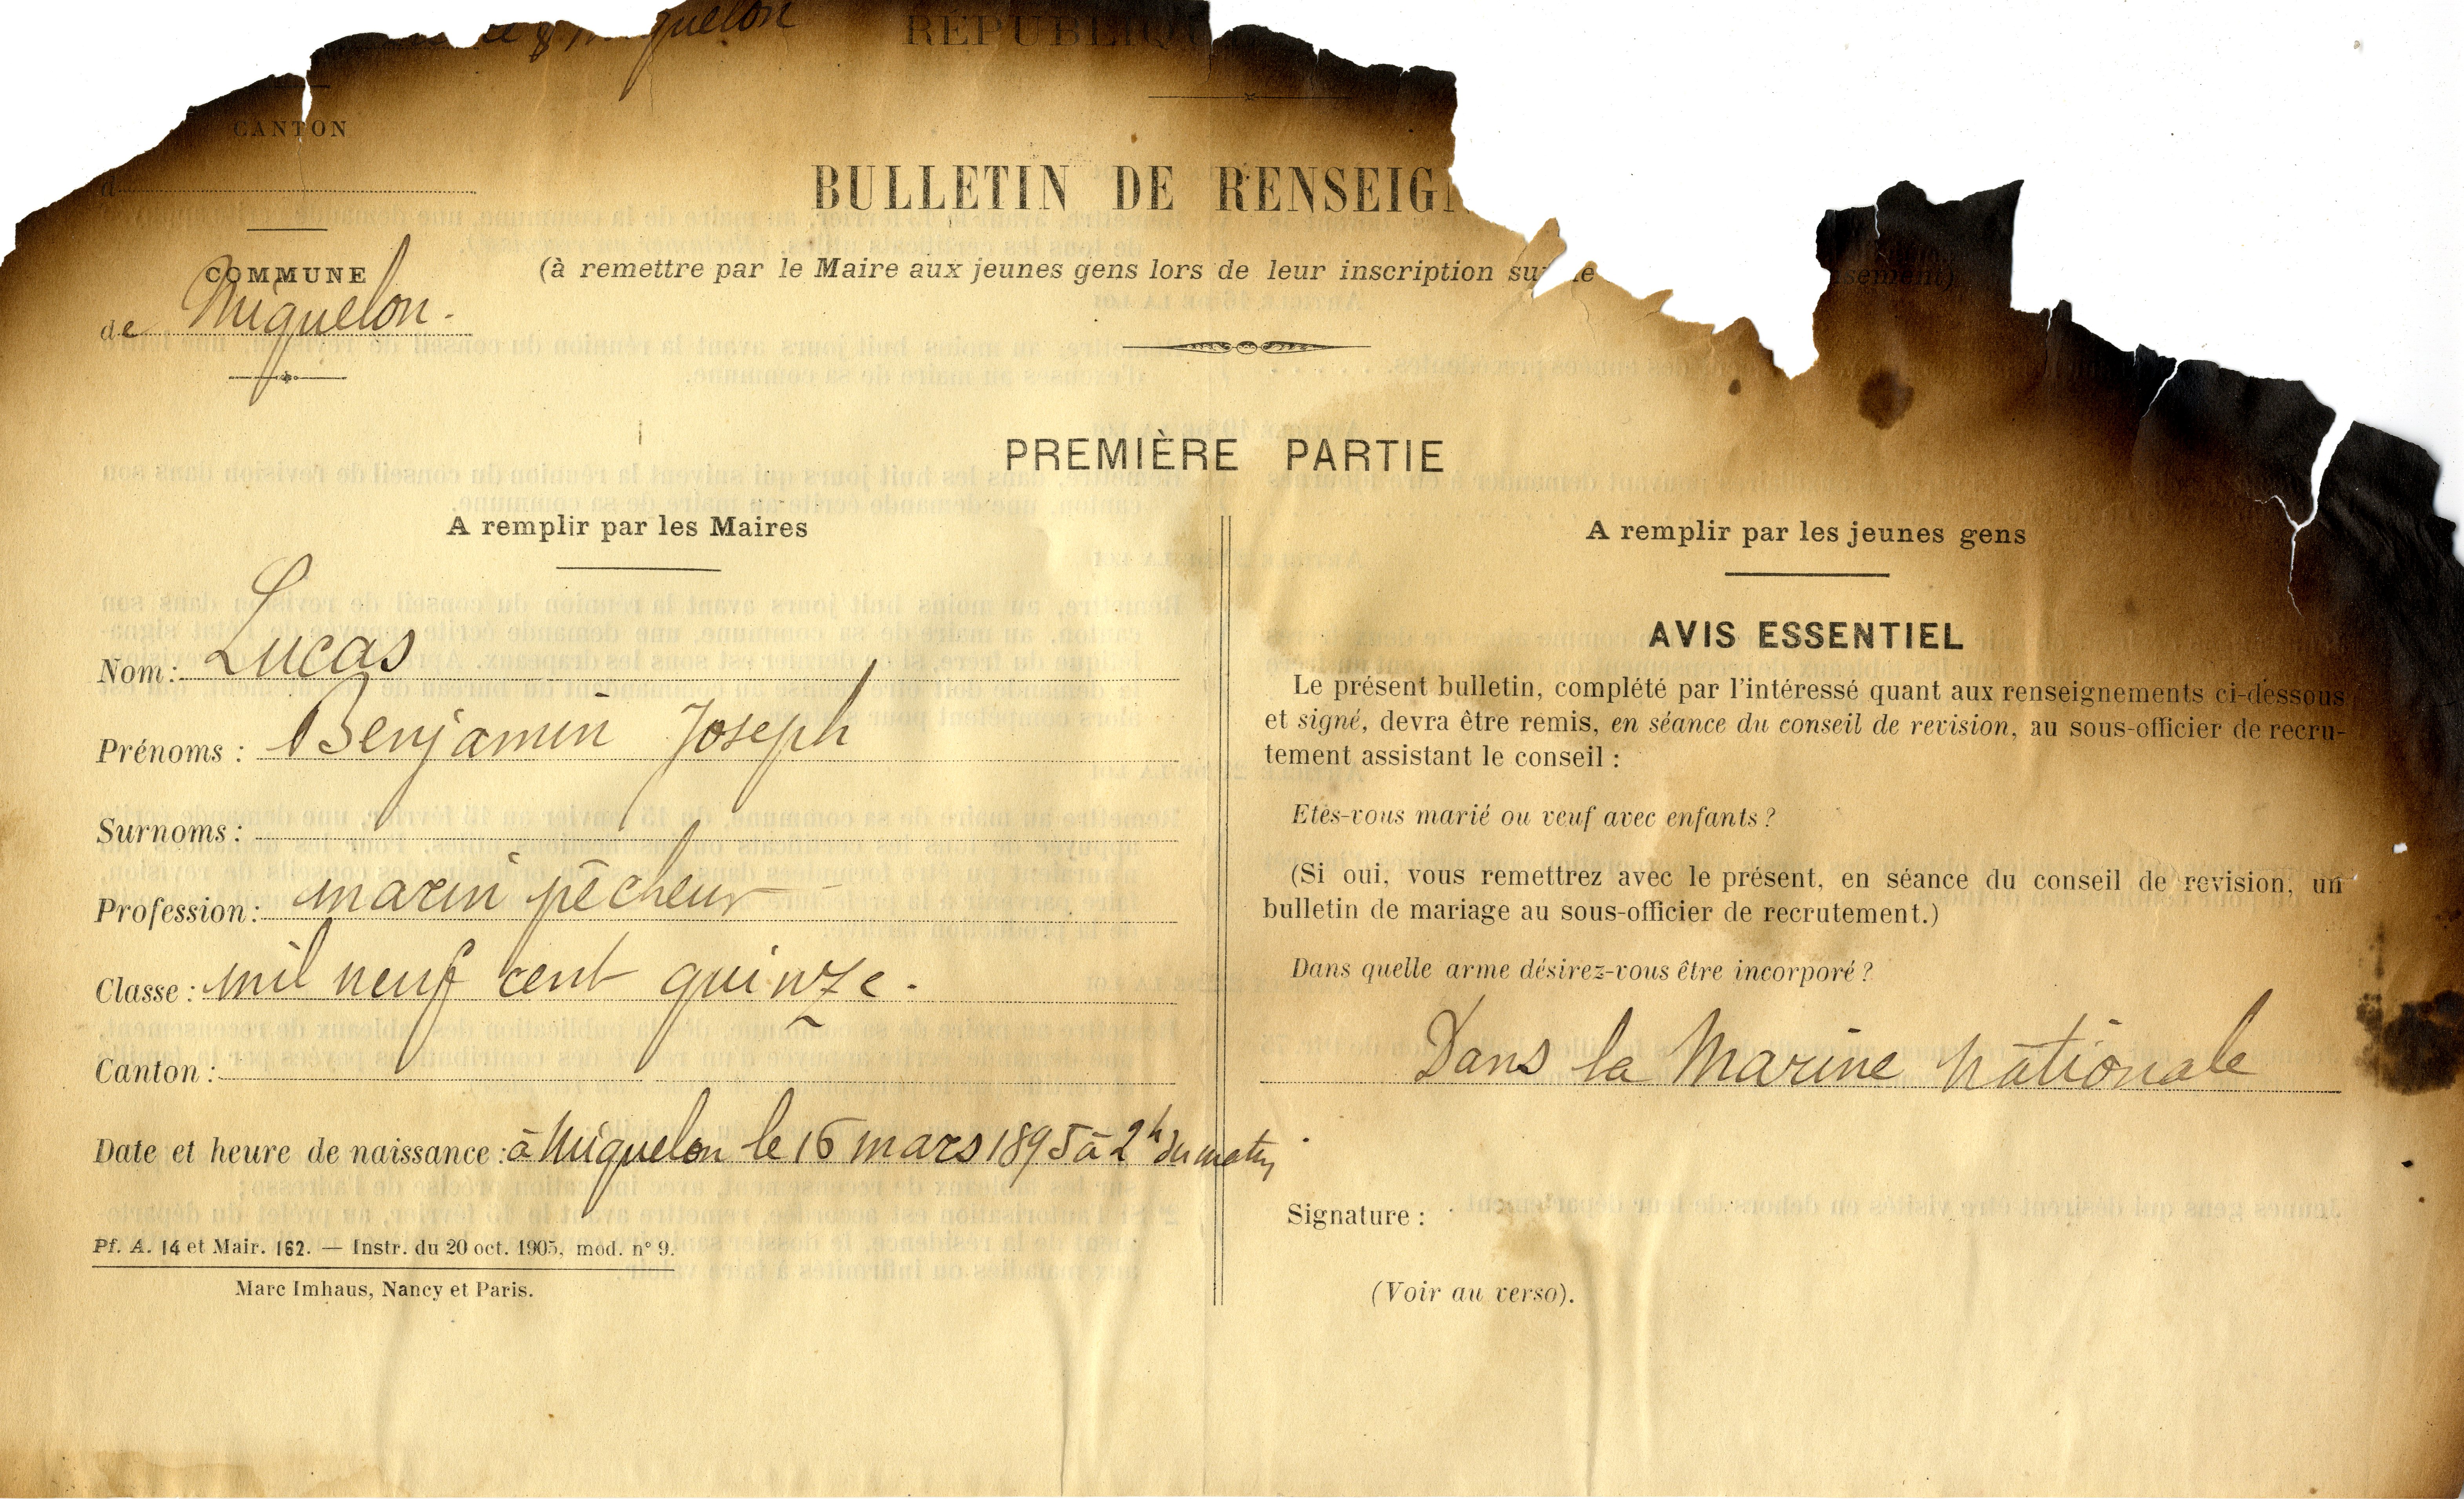 & Miquelon
RÉPUBLIQ
CANTON
d
BULLETIN DE RENSEIG
COMMUNE
de Miquelon.
(à remettre par le Maire aux jeunes gens lors de leur inscription sur le
sement)
PREMIÈRE PARTIE
A remplir par les Maires
Nom : Lucas
Prénoms : Benjamin Joseph
Surnoms :
Profession : marin pêcheur
Classe : mil neuf cent quinze.
Canton :
Date et heure de naissance : à Miquelon le 16 mars 1895 à 2h du matin
Pf. A. 14 et Mair. 162. — Instr. du 20 oct. 1905, mod. n° 9.
Marc Imhaus, Nancy et Paris.
A remplir par les jeunes gens
AVIS ESSENTIEL
Le présent bulletin, complété par l'intéressé quant aux renseignements ci-dessous
et signé, devra être remis, en séance du conseil de revision, au sous-officier de recru-
tement assistant le conseil :
Etes-vous marié ou veuf avec enfants ?
(Si oui, vous remettrez avec le présent, en séance du conseil de revision, un
bulletin de mariage au sous-officier de recrutement.)
Dans quelle arme désirez-vous être incorporé ?
Dans la Marine nationale
Signature :
(Voir au verso).